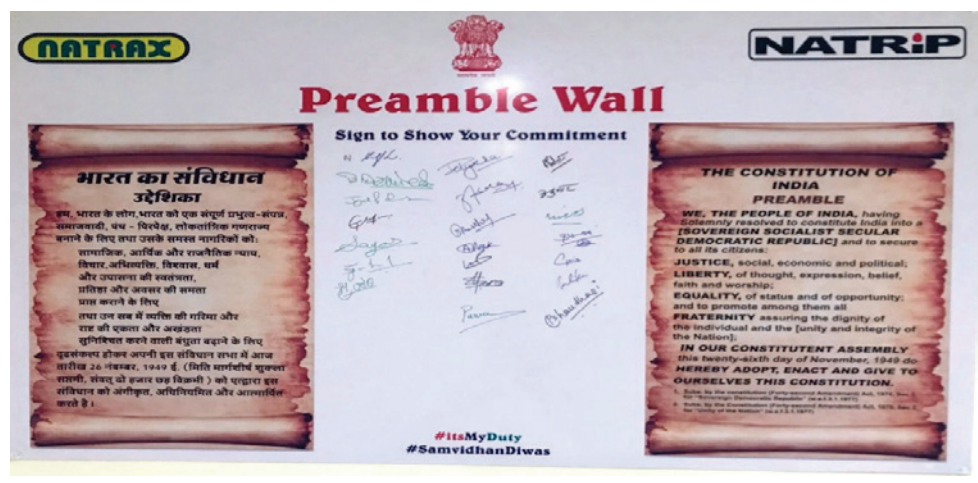 NATRAX
NATRiP
Preamble Wall
Sign to Show Your Commitment
भारत का संविधान
उद्देशिका
हम, भारत के लोग, भारत को एक संपूर्ण प्रभुत्व-संपन्न,
समाजवादी, पंथ - निरपेक्ष, लोकतांत्रिक गणराज्य
बनाने के लिए तथा उसके समस्त नागरिकों को:
सामाजिक, आर्थिक और राजनैतिक न्याय,
विचार, अभिव्यक्ति, विश्वास, धर्म
और उपासना की स्वतंत्रता,
प्रतिष्ठा और अवसर की समता
प्राप्त कराने के लिए
तथा उन सब में व्यक्ति की गरिमा और
राष्ट्र की एकता और अखंडता
सुनिश्चित करने वाली बंधुता बढ़ाने के लिए
दृढ़संकल्प होकर अपनी इस संविधान सभा में आज
तारीख 26 नंवम्बर, 1949 ई. (मिति मार्गशीर्ष शुक्ला
सप्तमी, संवत् दो हजार छह विक्रमी) को एतद्द्वारा इस
संविधान को अंगीकृत, अधिनियमित और आत्मार्पित
करते है।
THE CONSTITUTION OF
INDIA
PREAMBLE
WE, THE PEOPLE OF INDIA, having
Solemnly resolved to constitute India into a
[SOVEREIGN SOCIALIST SECULAR
DEMOCRATIC REPUBLIC] and to secure
to all its citizens:
JUSTICE, social, economic and political;
LIBERTY, of thought, expression, belief,
faith and worship;
EQUALITY, of status and of opportunity;
and to promote among them all
FRATERNITY assuring the dignity of
the individual and the [unity and integrity of
the Nation];
IN OUR CONSTITUENT ASSEMBLY
this twenty-sixth day of November, 1949 do
HEREBY ADOPT, ENACT AND GIVE TO
OURSELVES THIS CONSTITUTION.
1. Subs. by the constitution (Forty-second Amendment) Act, 1976, Sec.2,
for "Sovereign Democratic Republic" (w.e.f.3.1.1977)
2. Subs. by the Constitution (Forty-second Amendment) Act, 1976, Sec.2,
for "unity of the Nation" (w.e.f.3.1.1977)
#itsMyDuty
#SamvidhanDiwas